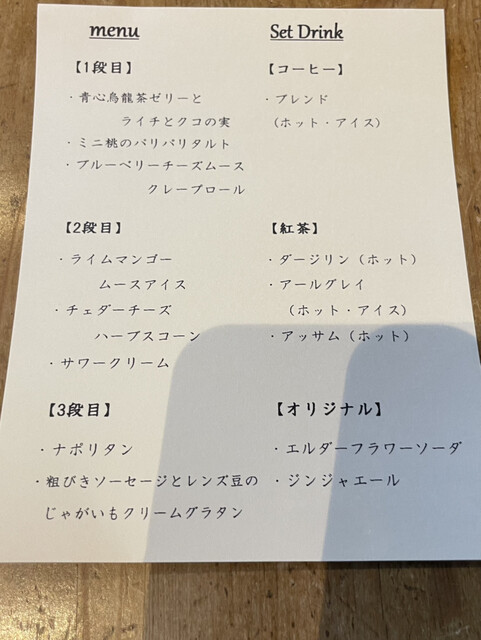 menu
【1段目】
・青心烏龍茶ゼリーと
ライチとクコの実
・ミニ桃のパリパリタルト
・ブルーベリーチーズムース
クレープロール
【2段目】
・ライムマンゴー
ムースアイス
・チェダーチーズ
ハーブスコーン
・サワークリーム
【3段目】
・ナポリタン
・粗びきソーセージとレンズ豆の
じゃがいもクリームグラタン
Set Drink
【コーヒー】
・ブレンド
（ホット・アイス）
【紅茶】
・ダージリン（ホット）
・アールグレイ
（ホット・アイス）
・アッサム（ホット）
【オリジナル】
・エルダーフラワーソーダ
・ジンジャエール